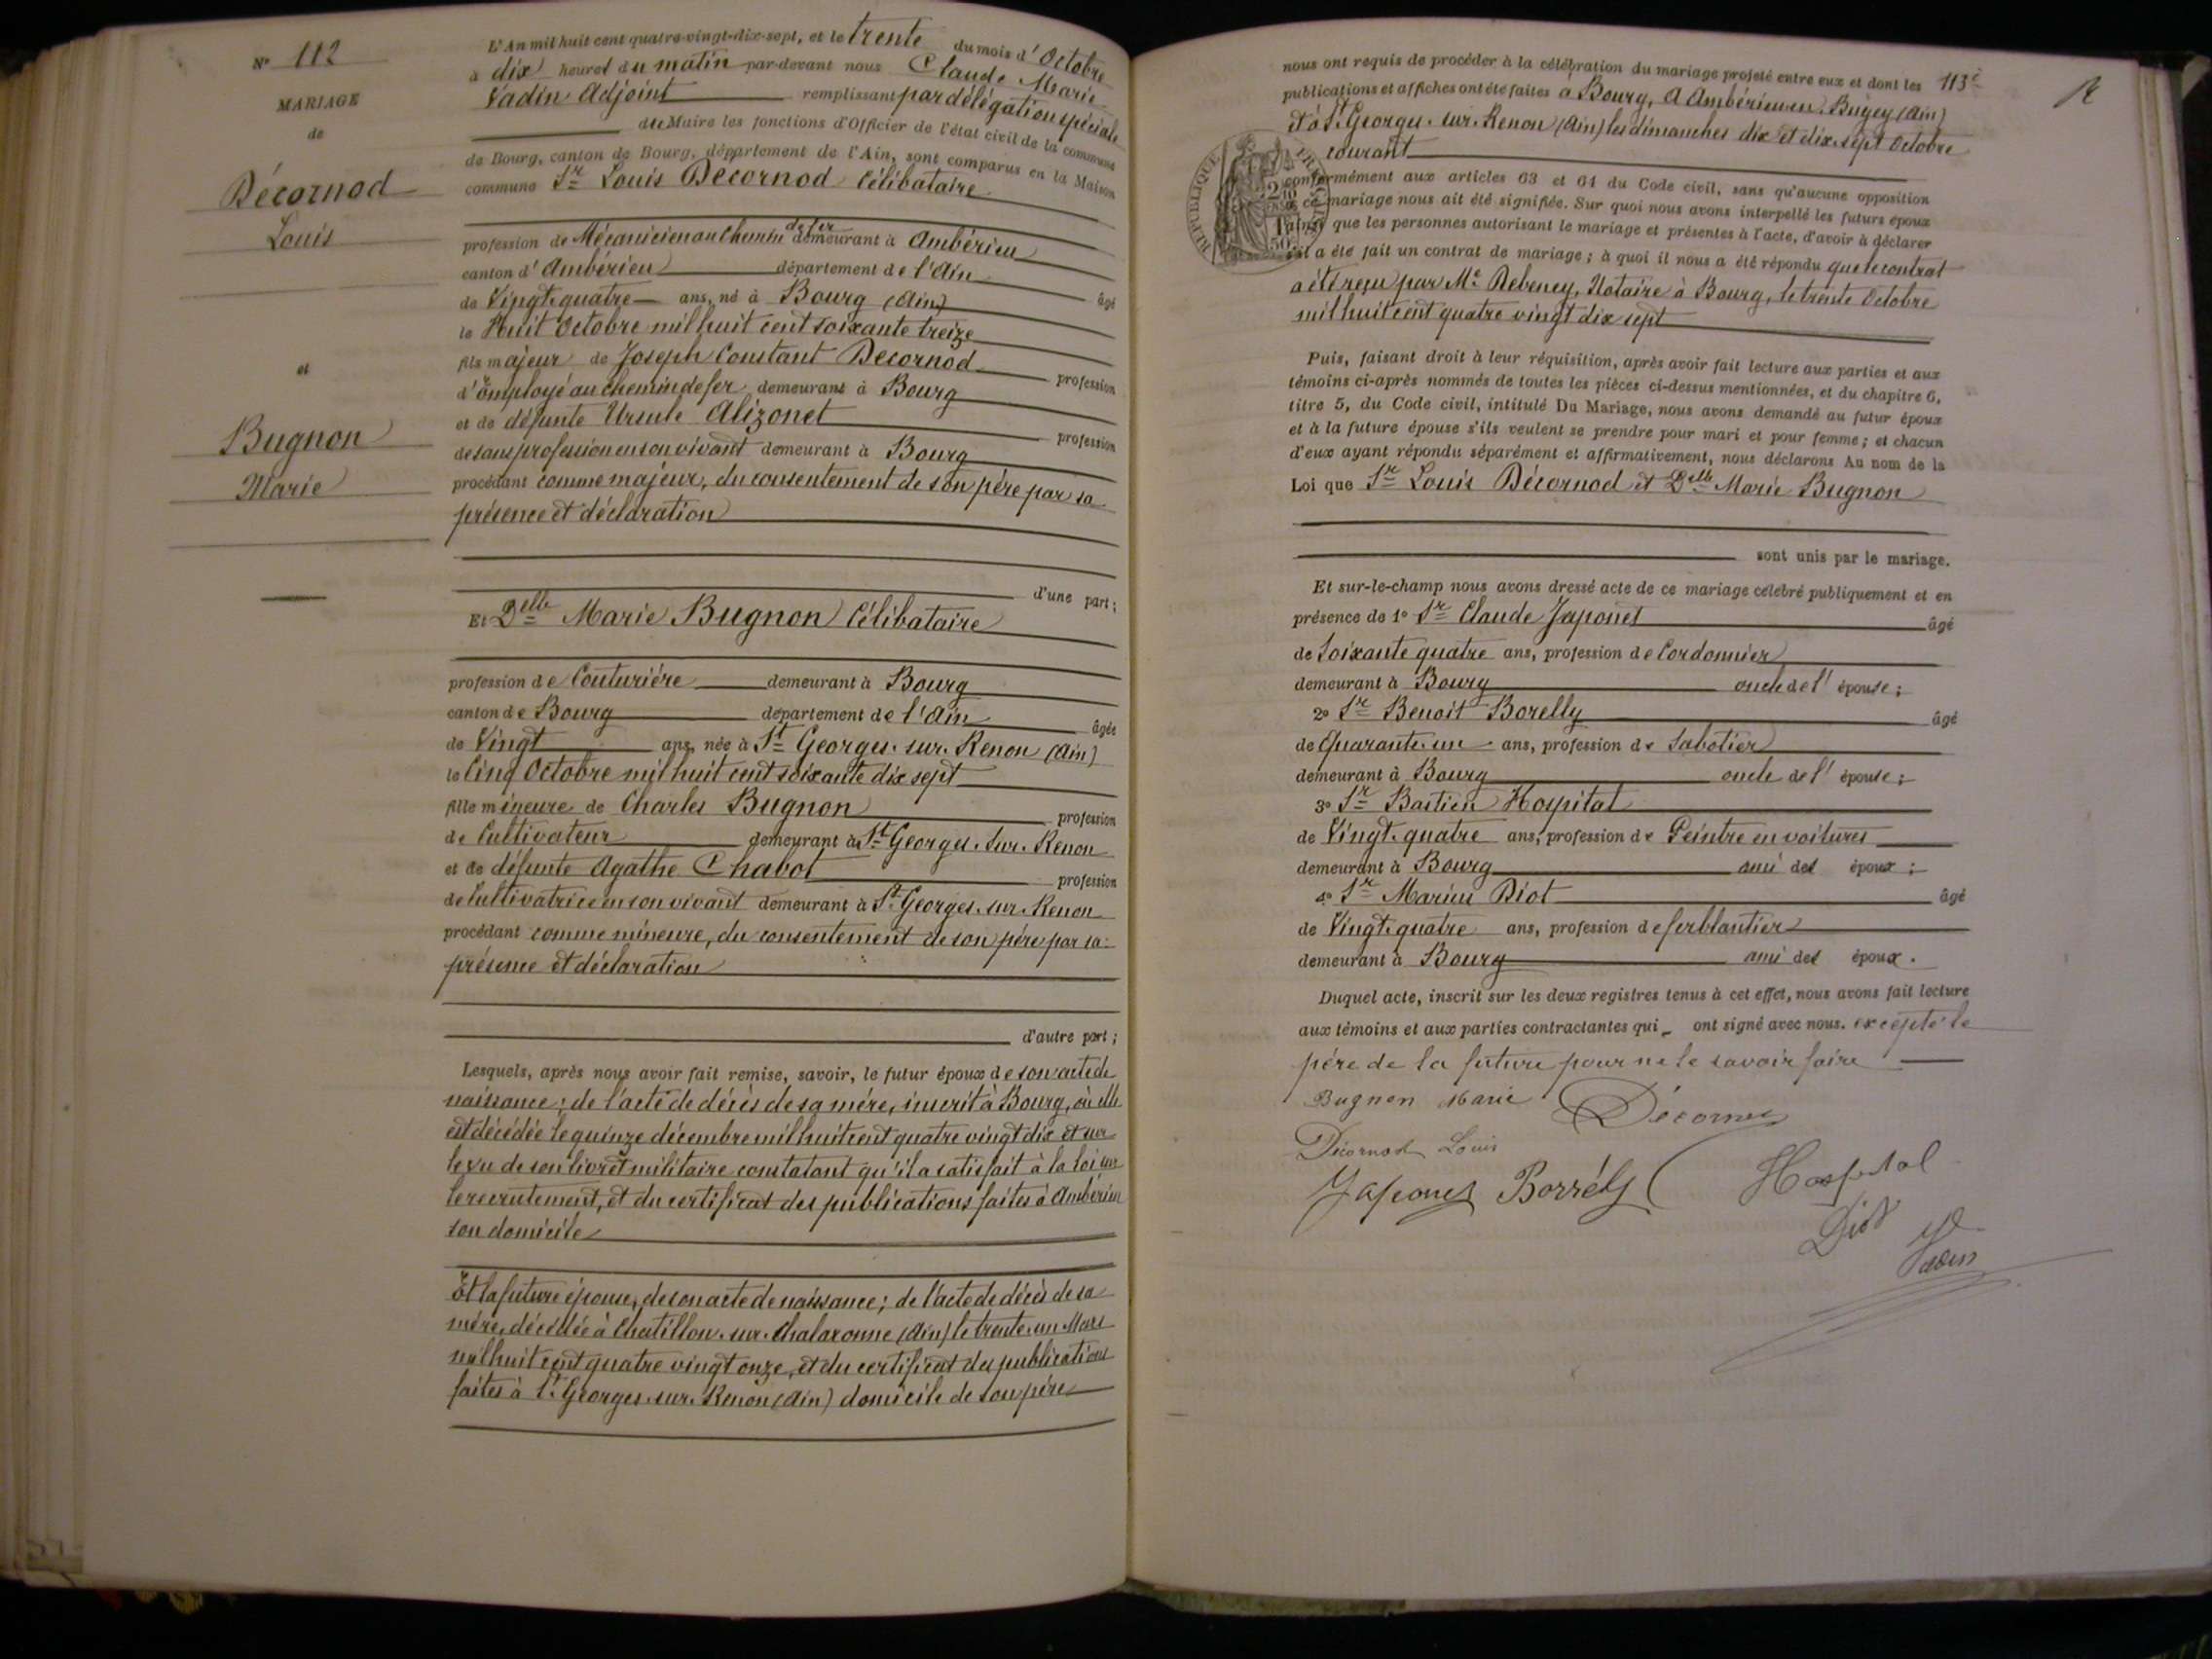 N° 112
MARIAGE
de
Décornod
Louis
et
Bugnon
Marie
L'An mil huit cent quatre-vingt-dix-sept, et le trente du mois d'Octobre
à dix heures du matin par-devant nous Claude Marie
Vadin Adjoint remplissant par délégation spéciale
du Maire les fonctions d'Officier de l'état civil de la commune
de Bourg, canton de Bourg, département de l'Ain, sont comparus en la Maison
commune Sr Louis Decornod Célibataire
profession de Mécanicien au Chemin de fer demeurant à Ambérieu
canton d'Ambérieu département de l'Ain âgé
de Vingt quatre ans, né à Bourg (Ain)
le Huit Octobre mil huit cent soixante treize
fils majeur de Joseph Constant Decornod profession
d'Employé au chemin de fer demeurant à Bourg
et de défunte Ursule Alizonet profession
de sans profession en son vivant demeurant à Bourg
procédant comme majeur, du consentement de son père par sa
présence et déclaration
d'une part;
Et Delle Marie Bugnon Célibataire
profession de Couturière demeurant à Bourg
canton de Bourg département de l'Ain âgée
de Vingt ans, née à St Georges. sur. Renon (Ain)
le Cinq Octobre mil huit cent soixante dix sept
fille mineure de Charles Bugnon profession
de Cultivateur demeurant à St Georges. sur. Renon
et de défunte Agathe Chabot profession
de Cultivatrice en son vivant demeurant à St Georges. sur. Renon
procédant comme mineure, du consentement de son père par sa
présence et déclaration
d'autre part;
Lesquels, après nous avoir fait remise, savoir, le futur époux de son acte de
naissance; de l'acte de décès de sa mère, inscrit à Bourg, où elle
est décédée le quinze décembre mil huit cent quatre vingt dix et sur
le vu de son livret militaire constatant qu'il a satisfait à la loi sur
le recrutement, et du certificat des publications faites à Ambérieu
son domicile
Et la future épouse, de son acte de naissance; de l'acte de décès de sa
mère, décédée à Chatillon. sur. Chalaronne (Ain) le trente. un Mars
mil huit cent quatre vingt onze, et du certificat des publications
faites à St Georges. sur. Renon (Ain) domicile de son père
113e
nous ont requis de procéder à la célébration du mariage projeté entre eux et dont les
publications et affiches ont été faites à Bourg, A Ambérieu en Bugey (Ain)
et à St Georges. sur. Renon (Ain) les dimanches dix et dix. sept Octobre
courant
conformément aux articles 63 et 64 du Code civil, sans qu'aucune opposition
à ce mariage nous ait été signifiée. Sur quoi nous avons interpellé les futurs époux
ainsi que les personnes autorisant le mariage et présentes à l'acte, d'avoir à déclarer
s'il a été fait un contrat de mariage; à quoi il nous a été répondu que le contrat
a été reçu par Me Debeney, Notaire à Bourg, le trente Octobre
mil huit cent quatre vingt dix sept
Puis, faisant droit à leur réquisition, après avoir fait lecture aux parties et aux
témoins ci-après nommés de toutes les pièces ci-dessus mentionnées, et du chapitre 6,
titre 5, du Code civil, intitulé Du Mariage, nous avons demandé au futur époux
et à la future épouse s'ils veulent se prendre pour mari et pour femme; et chacun
d'eux ayant répondu séparément et affirmativement, nous déclarons Au nom de la
Loi que Sr Louis Décornod et Delle Marie Bugnon
sont unis par le mariage.
Et sur-le-champ nous avons dressé acte de ce mariage célébré publiquement et en
présence de 1° Sr Claude Japonet âgé
de Soixante quatre ans, profession de Cordonnier
demeurant à Bourg oncle de l'épouse;
2° Sr Benoit Borelly âgé
de Quarante. un ans, profession de Sabotier
demeurant à Bourg oncle de l'épouse;
3° Sr Bastien Hospital
de Vingt. quatre ans, profession de Peintre en voitures
demeurant à Bourg ami des époux;
4° Sr Marius Diot âgé
de Vingt. quatre ans, profession de ferblantier
demeurant à Bourg ami des époux.
Duquel acte, inscrit sur les deux registres tenus à cet effet, nous avons fait lecture
aux témoins et aux parties contractantes qui ont signé avec nous. excepté le
père de la future pour ne le savoir faire
Bugnon Marie Décornod
Décornod Louis
Japonet Borrély Hospital
Diot
Vadin